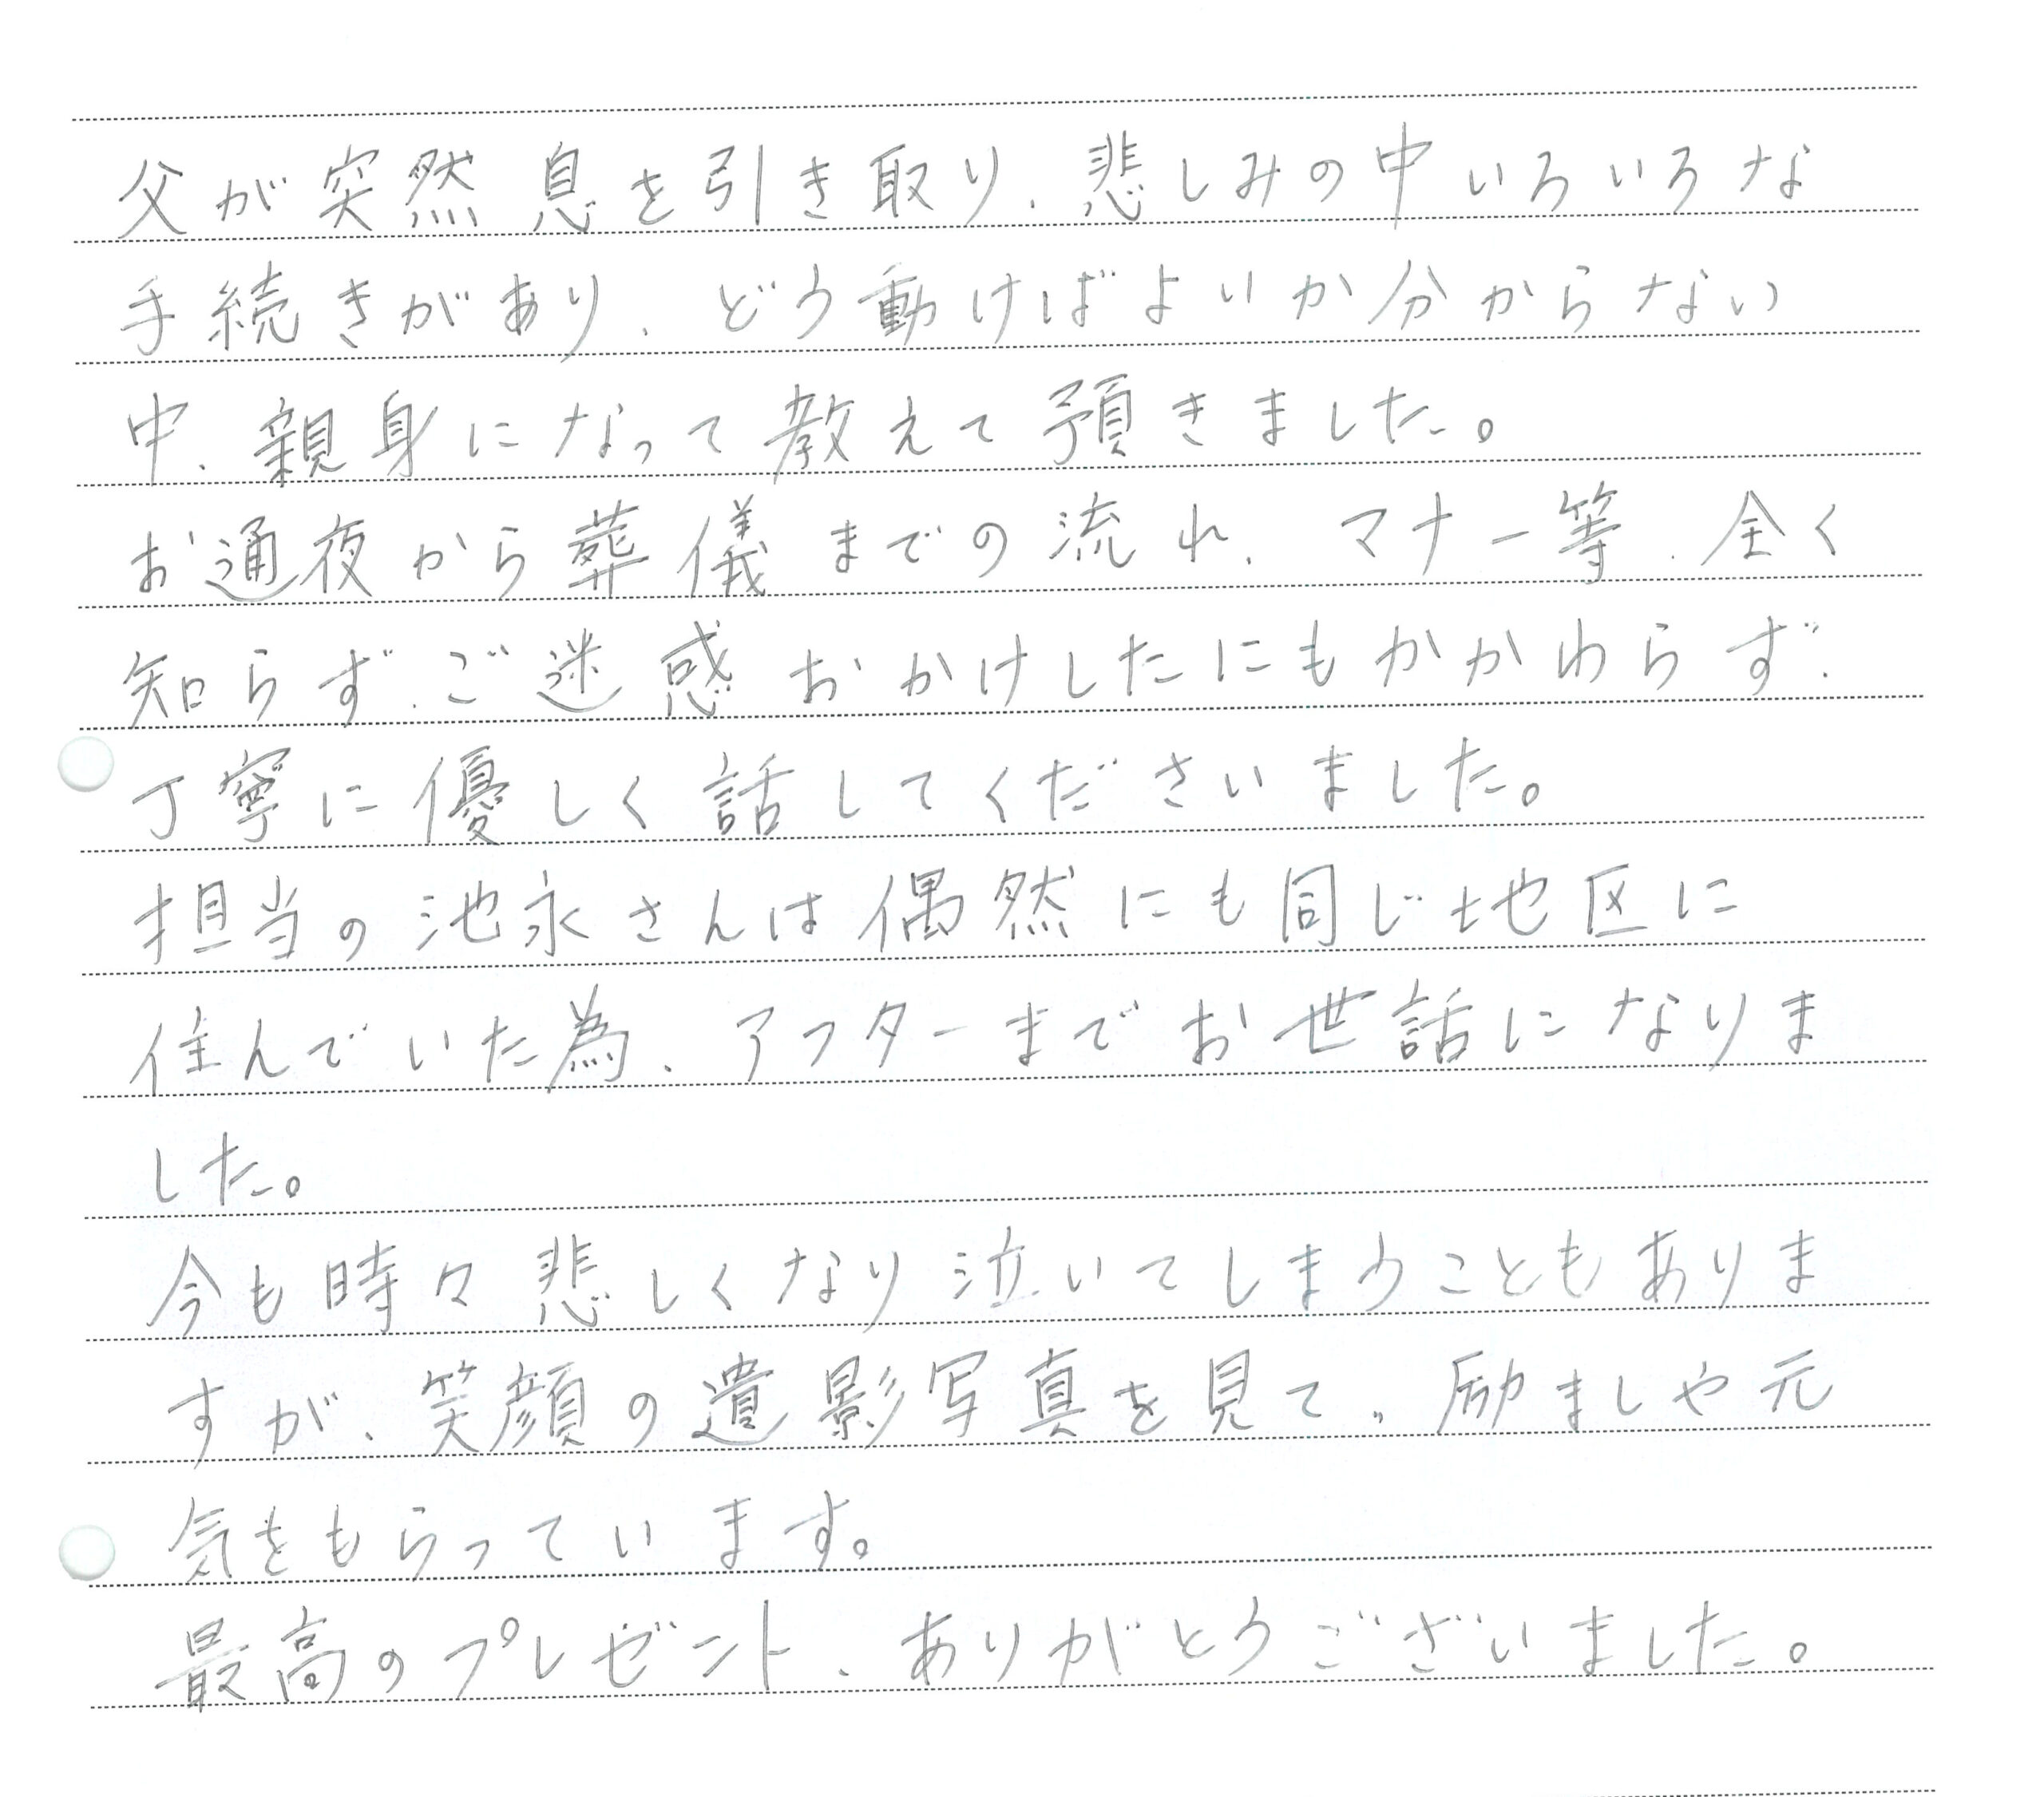 父が突然息を引き取り、悲しみの中いろいろな
手続きがあり、どう動けばよいか分からない
中、親身になって教えて預きました。
お通夜から葬儀までの流れ、マナー等、全く
知らず、ご迷惑おかけしたにもかかわらず、
丁寧に優しく話してくださいました。
担当の池永さんは偶然にも同じ地区に
住んでいた為、アフターまでお世話になりま
した。
今も時々悲しくなり泣いてしまうこともありま
すが、笑顔の遺影写真を見て、励ましや元
気をもらっています。
最高のプレゼント、ありがとうございました。